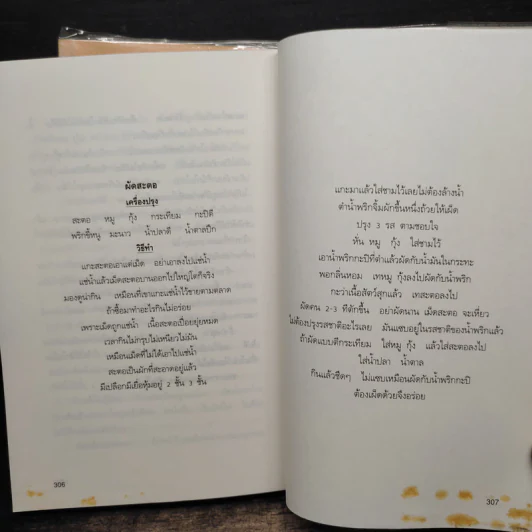 ผัดสะตอ
เครื่องปรุง
สะตอ หมู กุ้ง กระเทียม กะปิดี
พริกขี้หนู มะนาว น้ำปลาดี น้ำตาลปึก
วิธีทำ
แกะสะตอเอาแต่เม็ด อย่าเอาลงไปแช่น้ำ
แช่น้ำแล้วเม็ดสะตอบานออกไปใหญ่โตก็จริง
มองดูน่ากิน เหมือนที่เขาแกะแช่น้ำไว้ขายตามตลาด
ถ้าซื้อมาทำอะไรกินไม่อร่อย
เพราะเม็ดถูกแช่น้ำ เนื้อสะตอเปื่อยยุ่ยหมด
เวลากินไม่กรุบไม่เหนียวไม่มัน
เหมือนเม็ดที่ไม่ได้เอาไปแช่น้ำ
สะตอเป็นผักที่สะอาดอยู่แล้ว
มีเปลือกมีเยื่อหุ้มอยู่ 2 ชั้น 3 ชั้น
306
แกะมาแล้วใส่ชามไว้เลยไม่ต้องล้างน้ำ
ตำน้ำพริกจิ้มผักขึ้นหนึ่งถ้วยให้เผ็ด
ปรุง 3 รส ตามชอบใจ
หั่น หมู กุ้ง ใส่ชามไว้
เอาน้ำพริกกะปิที่ตำแล้วผัดกับน้ำมันในกระทะ
พอกลิ่นหอม เทหมู กุ้งลงไปผัดกับน้ำพริก
กะว่าเนื้อสัตว์สุกแล้ว เทสะตอลงไป
ผัดคน 2-3 ทีตักขึ้น อย่าผัดนาน เม็ดสะตอ จะเหี่ยว
ไม่ต้องปรุงรสชาติอะไรเลย มันแซบอยู่ในรสชาติของน้ำพริกแล้ว
ถ้าผัดแบบตีกระเทียม ใส่หมู กุ้ง แล้วใส่สะตอลงไป
ใส่น้ำปลา น้ำตาล
กินแล้วชืดๆ ไม่แซบเหมือนผัดกับน้ำพริกกะปิ
ต้องเผ็ดด้วยจึงอร่อย
307